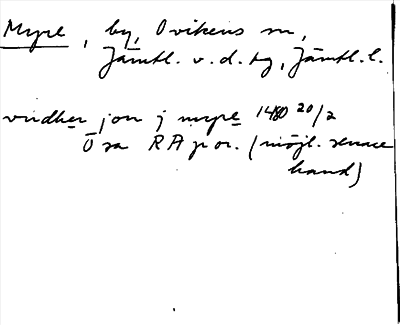 Myre, by, Ovikens sn,
Jämtl. v. d. tg, Jämtl. l.
vndher jon j myre 1480 20/2
Ö sa RA por. (möjl. senare
hand)